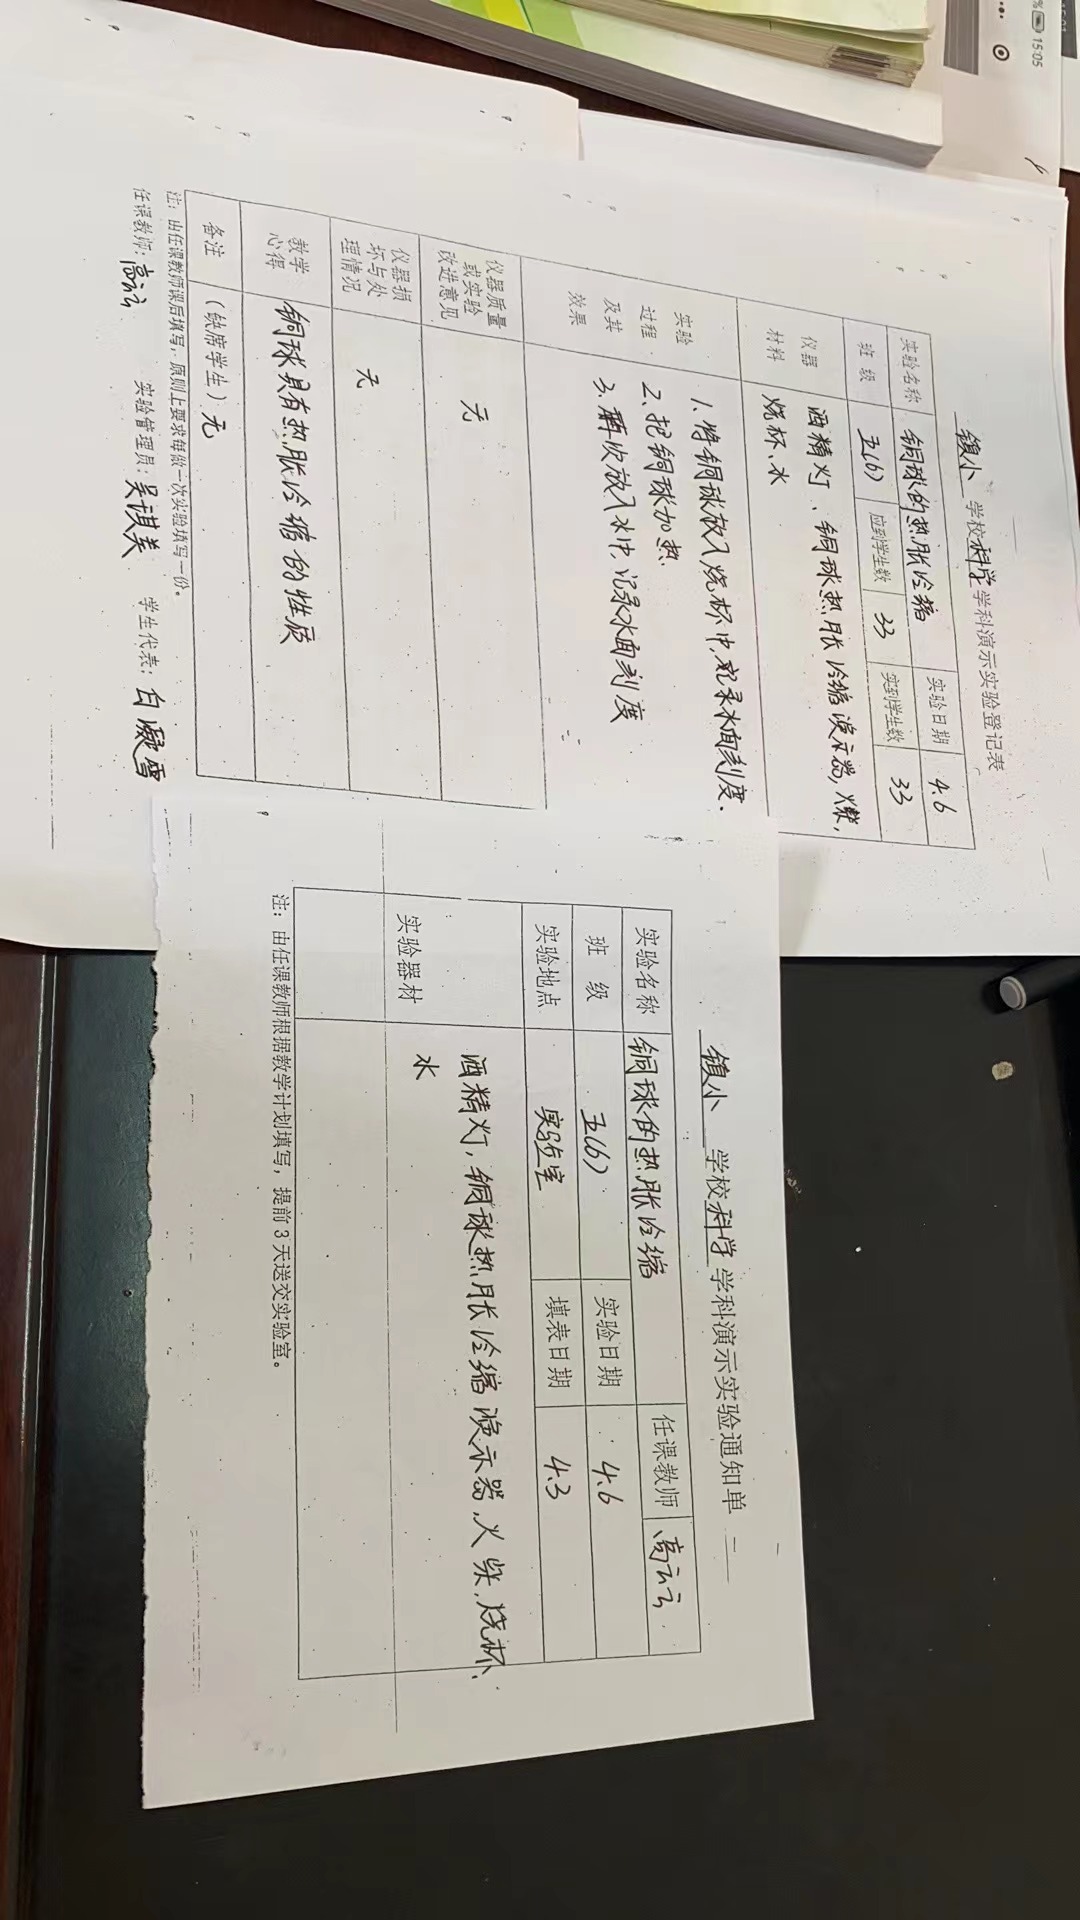 15:05
镇小 学校科学学科演示实验登记表
实验名称 铜球的热胀冷缩 实验日期 4.6
班 级 五(6) 应到学生数 33 实到学生数 33
仪器 酒精灯、铜球热胀冷缩演示器,火柴,
材料 烧杯、水
实验 1、将铜球放入烧杯中,记录水面刻度.
过程 2、把铜球加热
及其 3、再次放入水中,记录水面刻度
效果
仪器质量
或实验 无
改进意见
仪器损
坏与处 无
理情况
教学 铜球具有热胀冷缩的性质
心得
备注 (缺席学生)无
注:由任课教师课后填写,原则上要求每做一次实验填写一份。
任课教师:高云云 实验管理员:吴淇美 学生代表:白凝雪
镇小 学校科学学科演示实验通知单
实验名称 铜球的热胀冷缩 任课教师 高云云
班 级 五(6) 实验日期 4.6
实验地点 实验室 填表日期 4.3
酒精灯,铜球热胀冷缩演示器,火柴,烧杯、
实验器材 水
注:由任课教师根据教学计划填写,提前3天送交实验室。